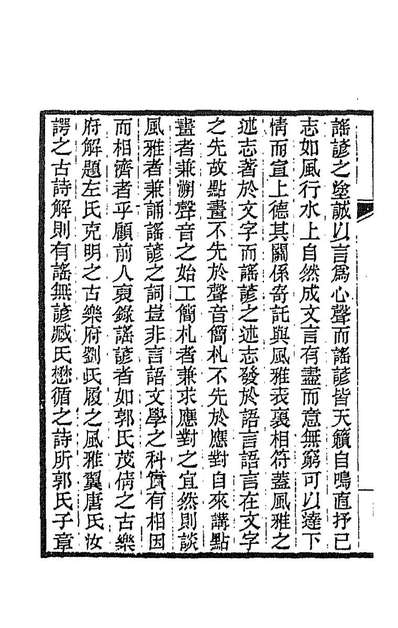 謠諺之塗誠以言爲心聲而謠諺皆天籟自鳴直抒己
志如風行水上自然成文言有盡而意無窮可以達下
情而宣上德其關係寄託與風雅表裏相符蓋風雅之
述志著於文字而謠諺之述志發於語言語言在文字
之先故點畫不先於聲音簡札不先於應對自來講點
畫者兼溯聲音之始工簡札者兼求應對之宜然則談
風雅者兼誦謠諺之詞豈非言語文學之科實有相因
而相濟者乎顧前人裒錄謠諺者如郭氏茂倩之古樂
府解題左氏克明之古樂府劉氏履之風雅翼唐氏汝
諤之古詩解則有謠無諺臧氏懋循之詩所郭氏子章